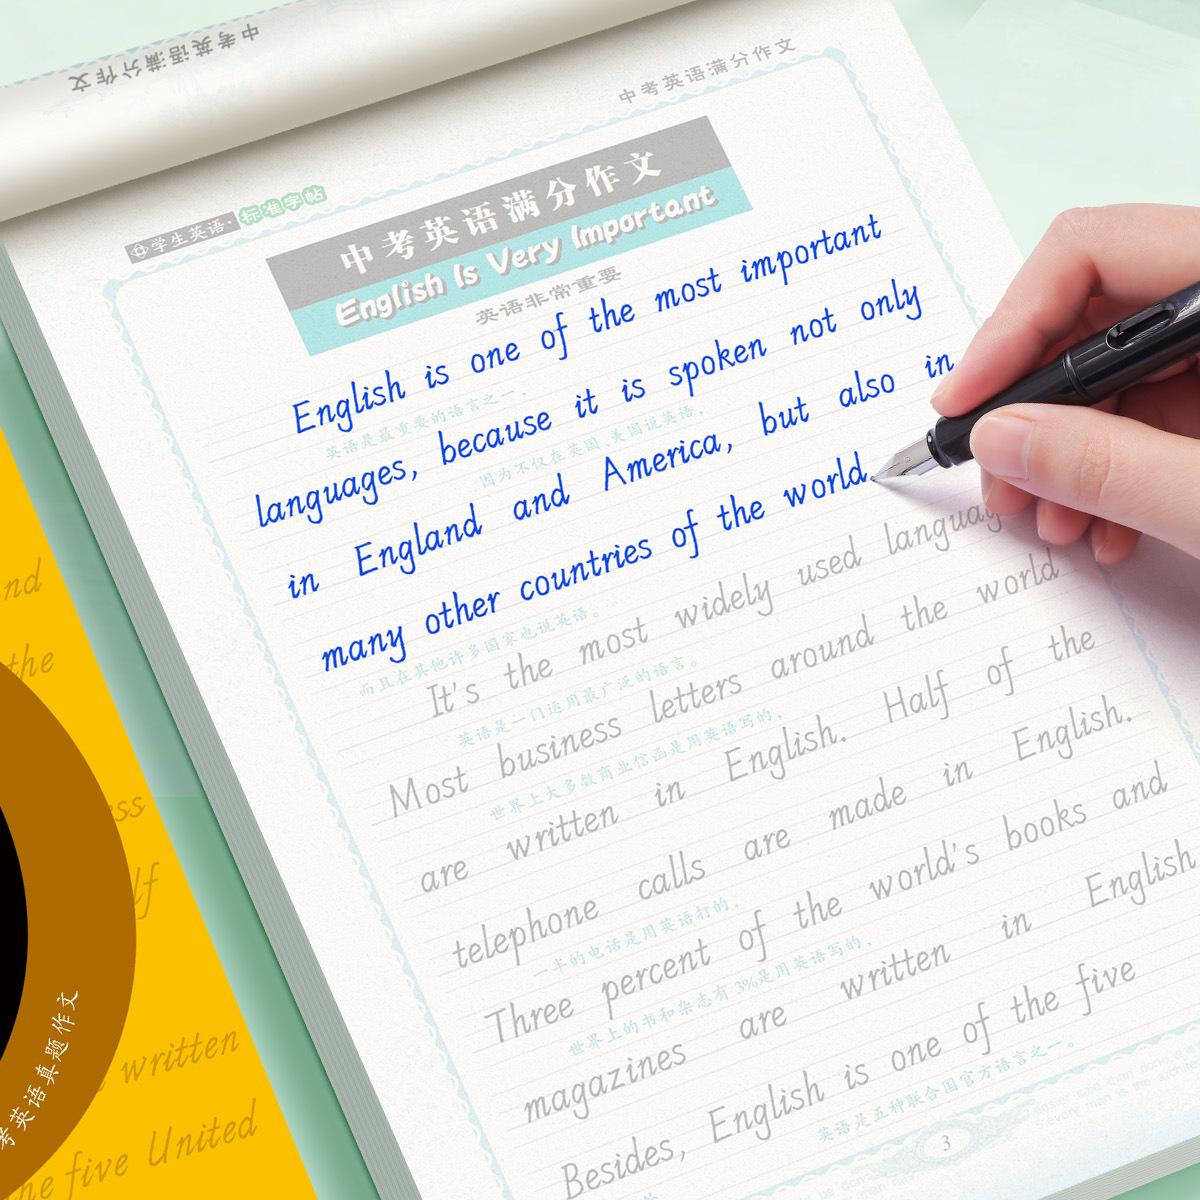 中考英语满分作文
中考英语满分作文
学生英语·标准字帖
中考英语满分作文
English Is Very Important
英语非常重要
English is one of the most important
英语是最重要的语言之一，
languages, because it is spoken not only
因为不仅在英国、美国说英语，
in England and America, but also in
many other countries of the world.
而且在其他许多国家也说英语。
It's the most widely used
英语是一门运用最广泛的语言。
Most business letters around the world
世界上大多数商业信函是用英语写的，
are written in English. Half of the
telephone calls are made in English.
一半的电话是用英语打的，
Three percent of the world's books and
世界上的书和杂志有3%是用英语写的，
magazines are written in English
Besides, English is one of the five
英语是五种联合国官方语言之一。
3
the
written
考英语真题作文
five United